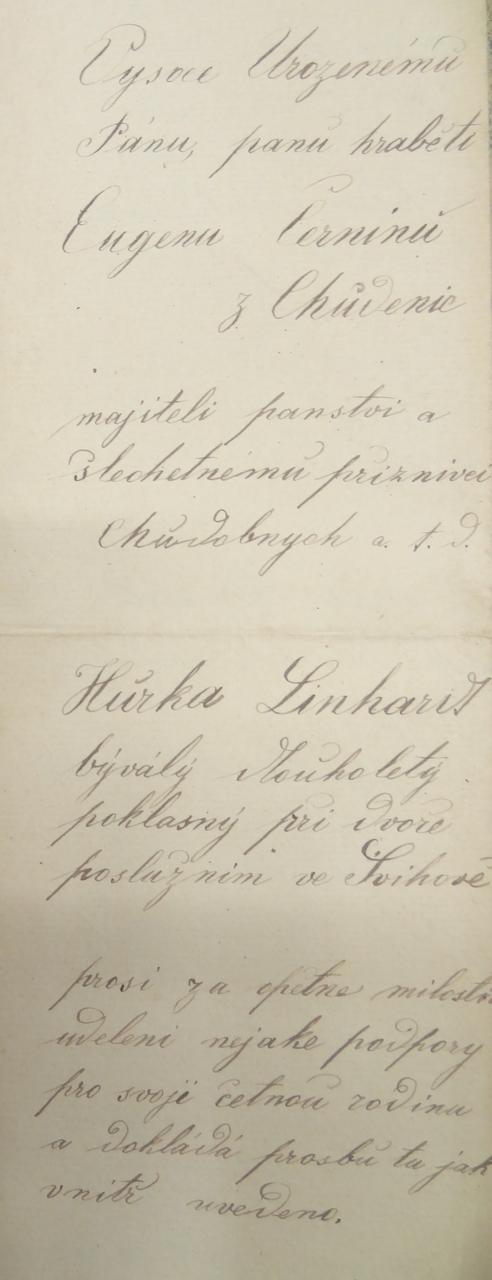 Vysoce Urozenému
Pánu, panu hraběti
Eugenu Černinu
z Chudenic
majiteli panstvi a
šlechetnému přiznivci
Chudobnych a. t. d.
Hurka Linhart
bývalý dlouholetý
poklasný při dvoře
poslužnim ve Švihově
prosi za opetne milostiv
udeleni nejake podpory
pro svoji četnou rodinu
a dokládá prosbu tu jak
vnitř uvedeno.